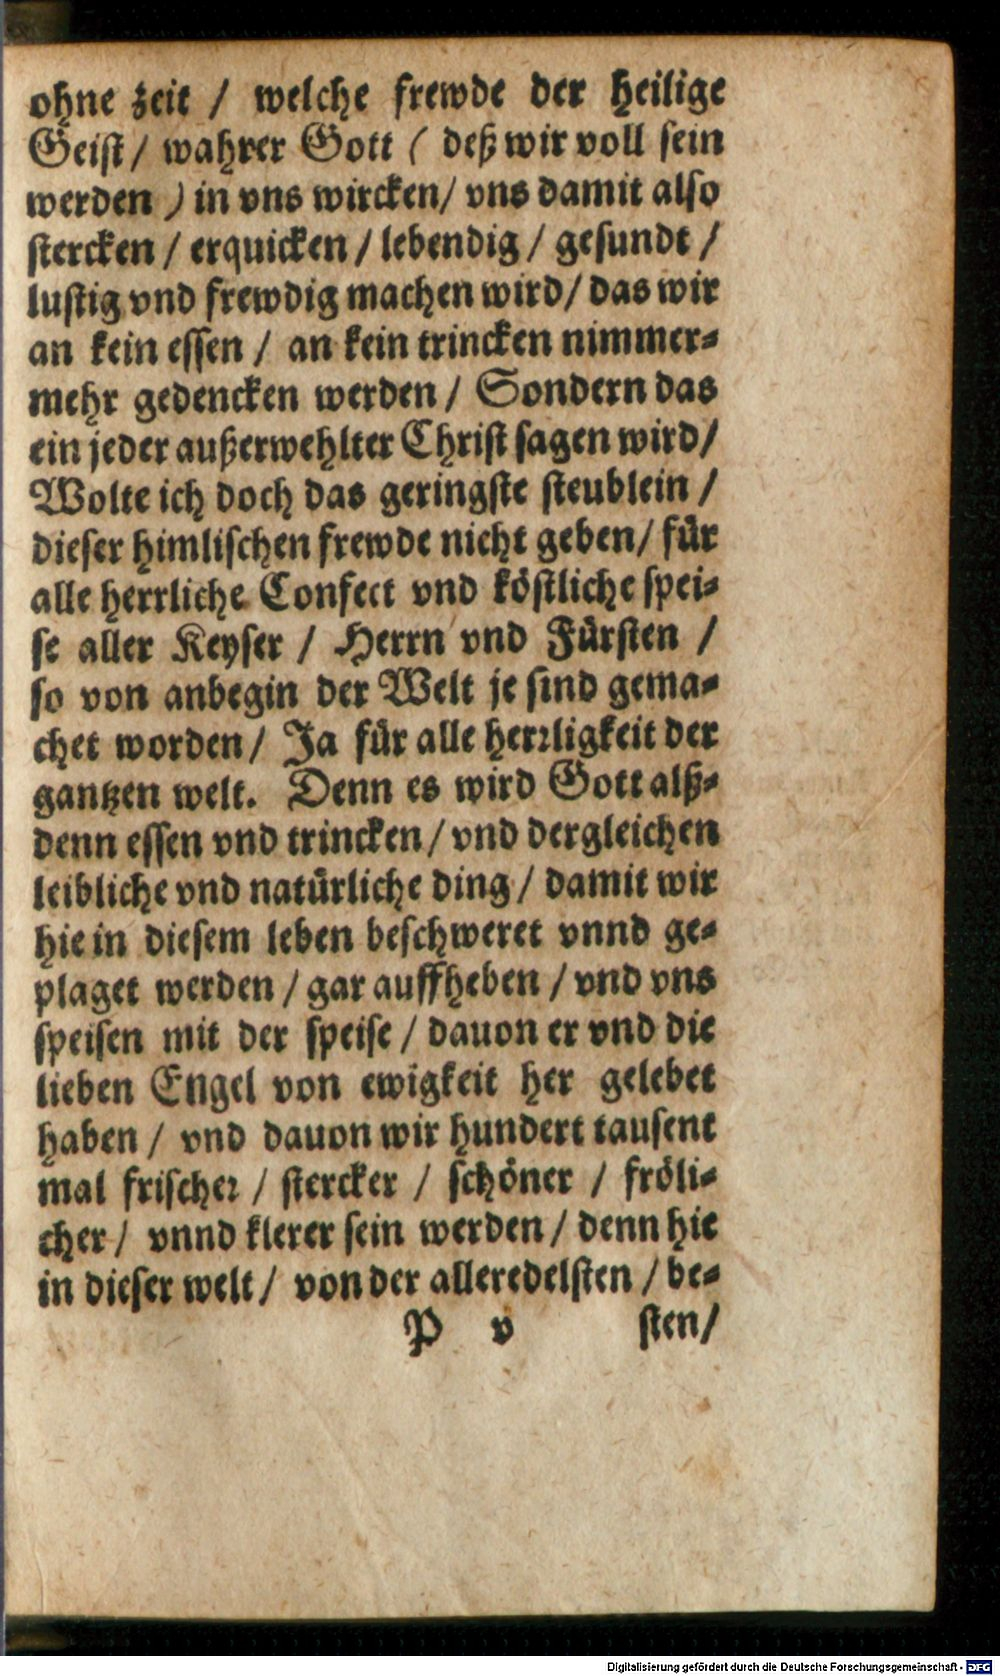 ohne zeit / welche frewde der heilige
Geist / wahrer Gott ( deß wir voll sein
werden ) in vns wircken / vns damit also
stercken / erquicken / lebendig / gesundt /
lustig vnd frewdig machen wird / das wir
an kein essen / an kein trincken nimmer-
mehr gedencken werden / Sondern das
ein jeder außerwehlter Christ sagen wird /
Wolte ich doch das geringste steublein /
dieser himlischen frewde nicht geben / für
alle herrliche Confect vnd köstliche spei-
se aller Keyser / Herrn vnd Fürsten /
so von anbegin der Welt je sind gema-
chet worden / Ja für alle herrligkeit der
gantzen welt. Denn es wird Gott alß-
denn essen vnd trincken / vnd dergleichen
leibliche vnd natürliche ding / damit wir
hie in diesem leben beschweret vnnd ge-
plaget werden / gar auffheben / vnd vns
speisen mit der speise / dauon er vnd die
lieben Engel von ewigkeit her gelebet
haben / vnd dauon wir hundert tausent
mal frischer / stercker / schöner / fröli-
cher / vnnd klerer sein werden / denn hie
in dieser welt / von der alleredelsten / be-
P v sten /
Digitalisierung gefördert durch die Deutsche Forschungsgemeinschaft - DFG